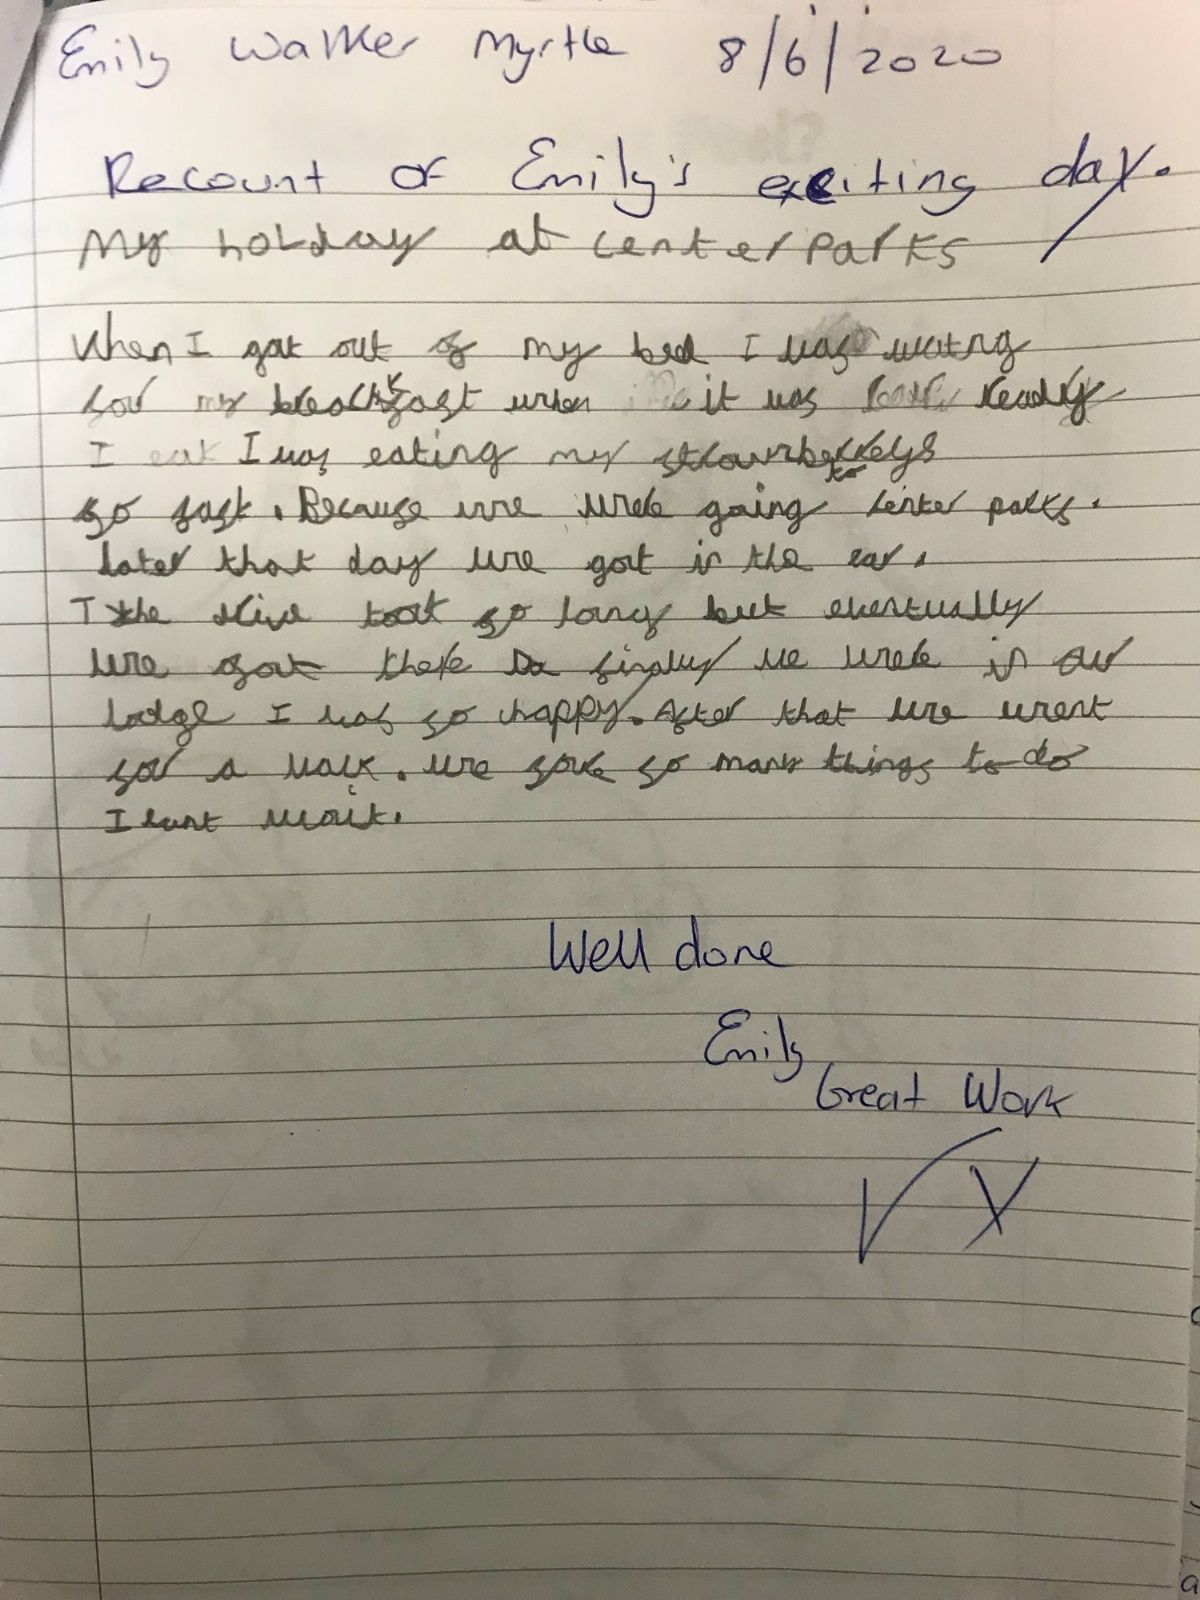 Emily Walker Myrtle 8/6/2020
Recount of Emily's exciting day.
My holday at center Parks
When I got out of my bed I was wating
for my breackfast when it was ready
I eat I was eating my
so fast. Because we were going to center parks.
Later that day we got in the car.
The drive took so long but eventually
we got there finaly we were in our
lodge I was so happy. After that we went
for a walk. we gove so many things to do
I cant wait.
Well done
Emily
Great Work
✓ X